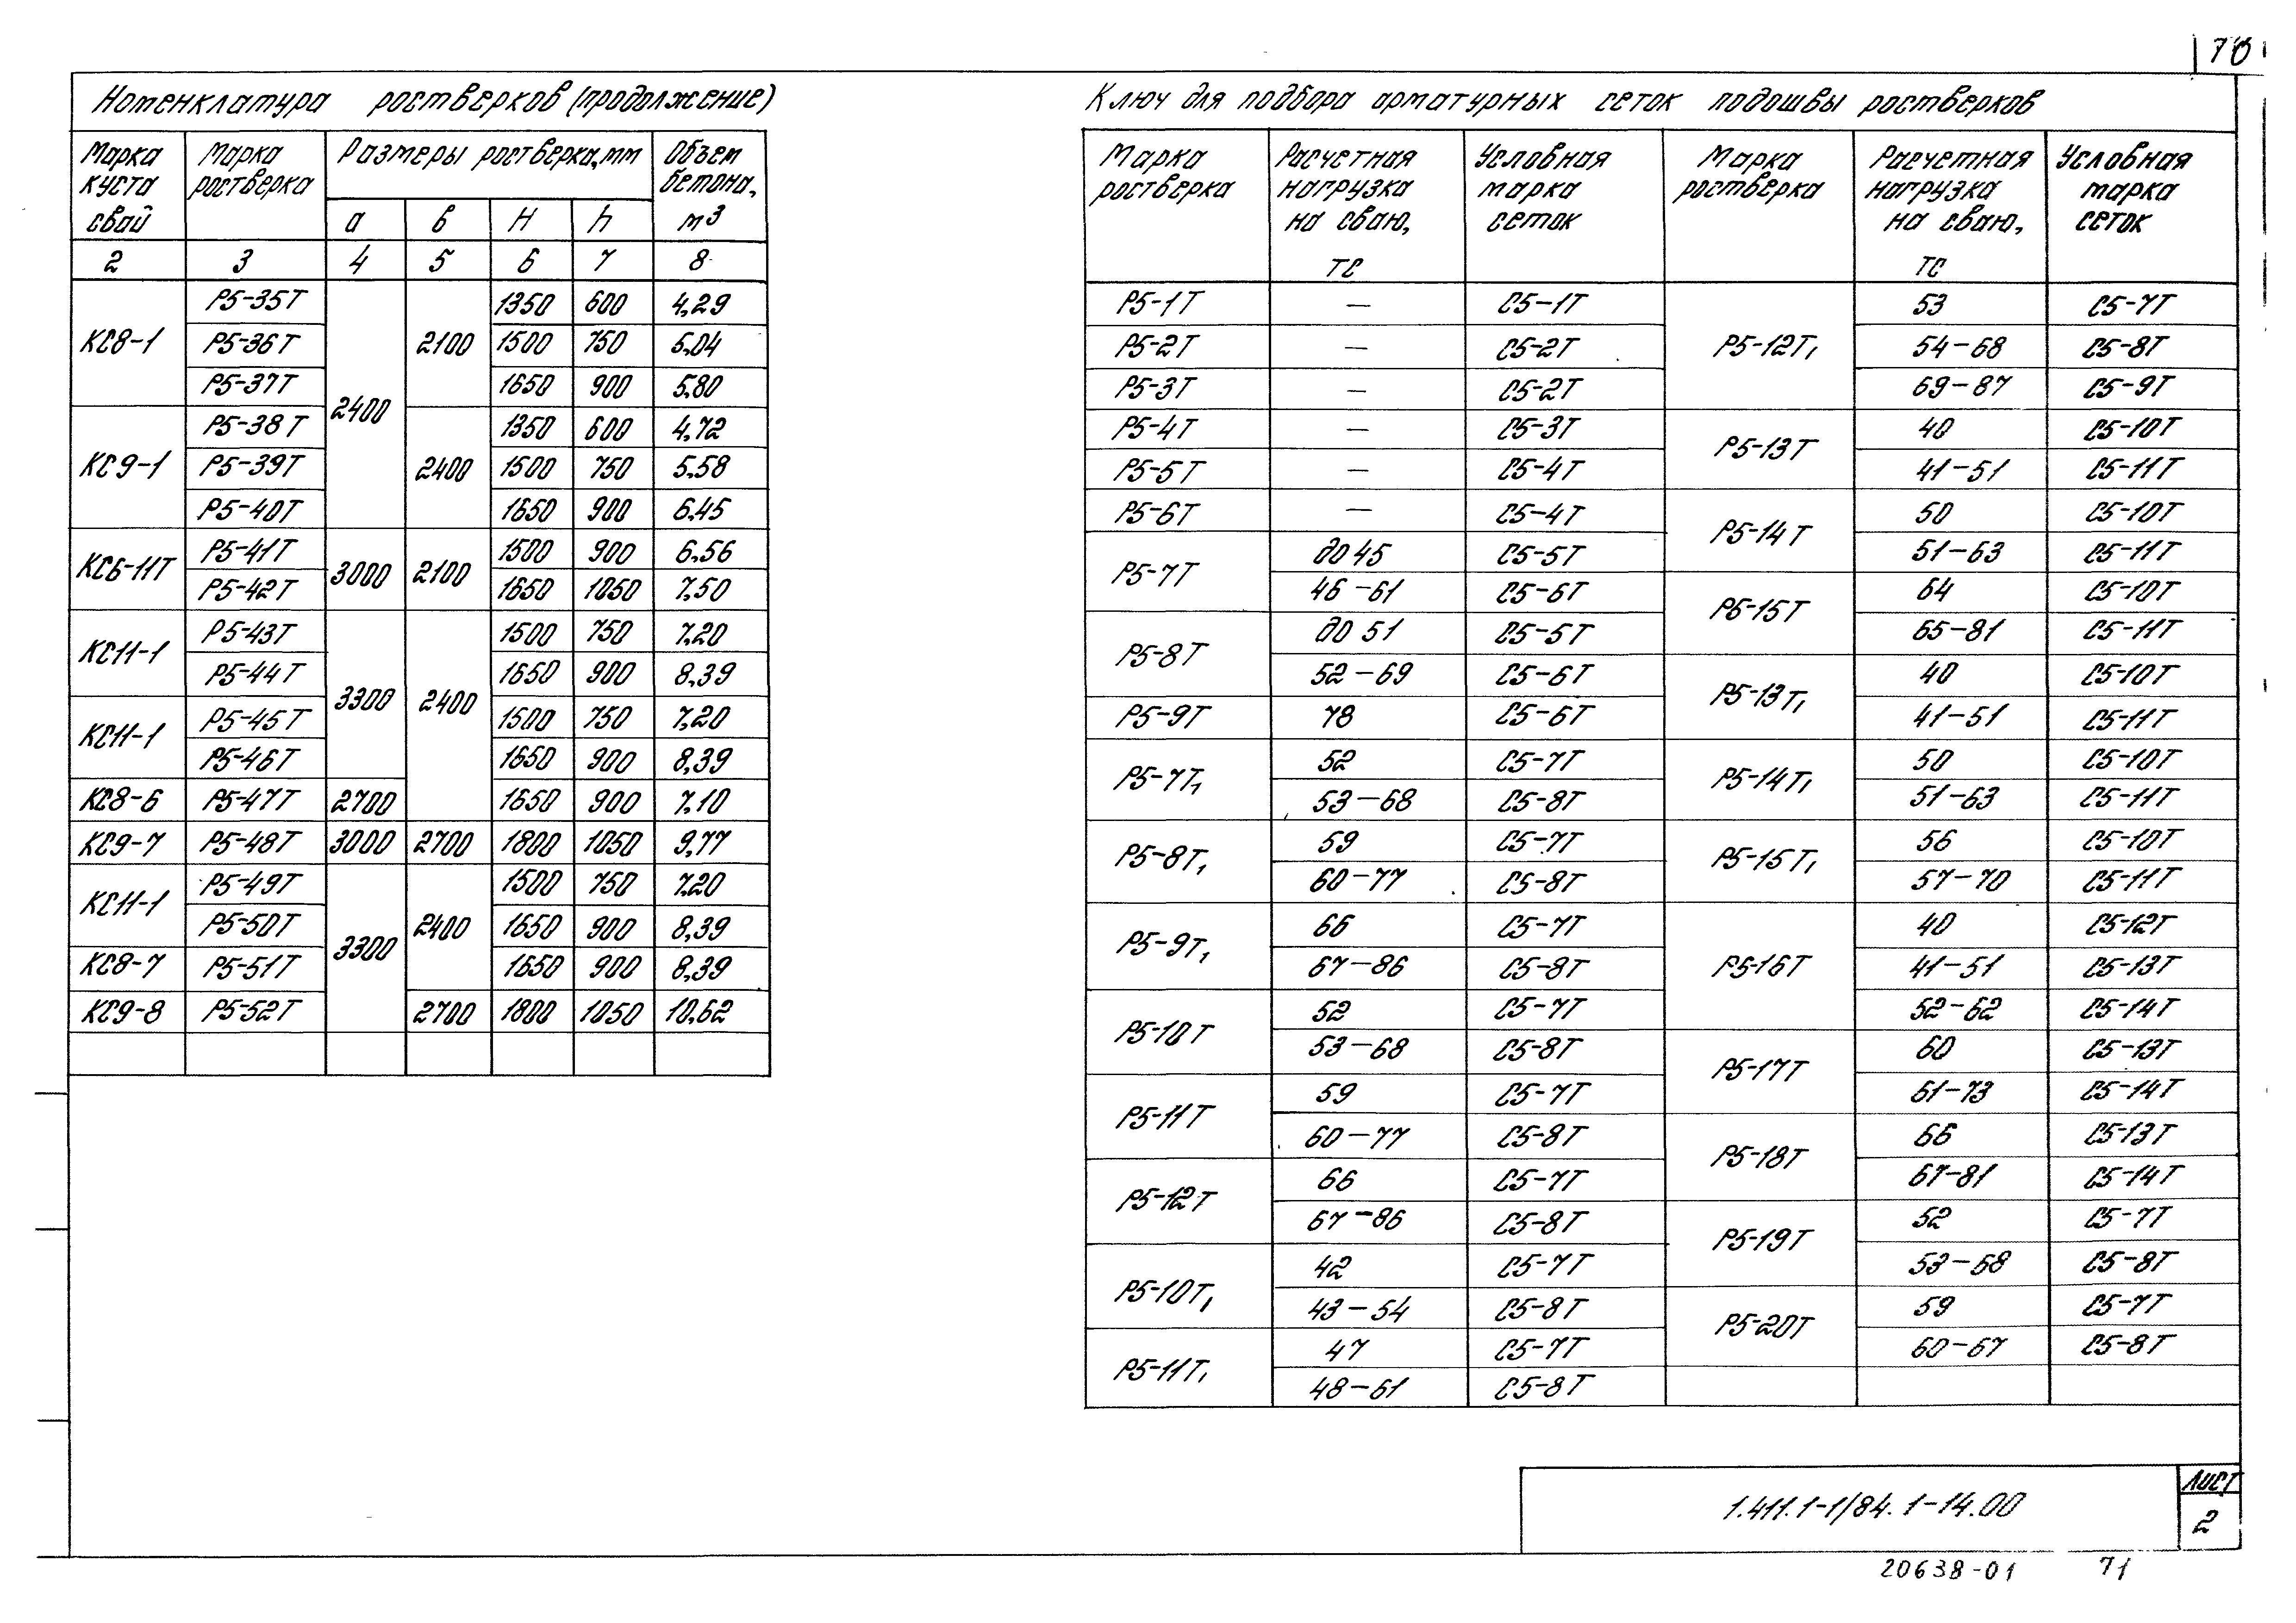 70
Номенклатура ростверков (продолжение)
Марка куста свай | Марка ростверка | Размеры ростверка, мм | Объем бетона, м3
а | в | H | h
2 | 3 | 4 | 5 | 6 | 7 | 8
КС8-1 | Р5-35Т | 2400 | 2100 | 1350 | 600 | 4,29
Р5-36Т | 1500 | 750 | 5,04
Р5-37Т | 1650 | 900 | 5,80
КС9-1 | Р5-38Т | 2400 | 1350 | 600 | 4,72
Р5-39Т | 1500 | 750 | 5,58
Р5-40Т | 1650 | 900 | 6,45
КС6-11Т | Р5-41Т | 3000 | 2100 | 1500 | 900 | 6,56
Р5-42Т | 1650 | 1050 | 7,50
КС11-1 | Р5-43Т | 3300 | 2400 | 1500 | 750 | 7,20
Р5-44Т | 1650 | 900 | 8,39
КС11-1 | Р5-45Т | 1500 | 750 | 7,20
Р5-46Т | 1650 | 900 | 8,39
КС8-6 | Р5-47Т | 2700 | 1650 | 900 | 7,10
КС9-7 | Р5-48Т | 3000 | 2700 | 1800 | 1050 | 9,77
КС11-1 | Р5-49Т | 3300 | 2400 | 1500 | 750 | 7,20
Р5-50Т | 1650 | 900 | 8,39
КС8-7 | Р5-51Т | 1650 | 900 | 8,39
КС9-8 | Р5-52Т | 2700 | 1800 | 1050 | 10,62
Ключ для подбора арматурных сеток подошвы ростверков
Марка ростверка | Расчетная нагрузка на сваю, тс | Условная марка сеток | Марка ростверка | Расчетная нагрузка на сваю, тс | Условная марка сеток
Р5-1Т | — | С5-1Т | Р5-12Т1 | 53 | С5-7Т
Р5-2Т | — | С5-2Т | 54-68 | С5-8Т
Р5-3Т | — | С5-2Т | 69-87 | С5-9Т
Р5-4Т | — | С5-3Т | Р5-13Т | 40 | С5-10Т
Р5-5Т | — | С5-4Т | 41-51 | С5-11Т
Р5-6Т | — | С5-4Т | Р5-14Т | 50 | С5-10Т
Р5-7Т | до 45 | С5-5Т | 51-63 | С5-11Т
46-61 | С5-6Т | Р5-15Т | 64 | С5-10Т
Р5-8Т | до 51 | С5-5Т | 65-81 | С5-11Т
52-69 | С5-6Т | Р5-13Т1 | 40 | С5-10Т
Р5-9Т | 78 | С5-6Т | 41-51 | С5-11Т
Р5-7Т1 | 52 | С5-7Т | Р5-14Т1 | 50 | С5-10Т
53-68 | С5-8Т | 51-63 | С5-11Т
Р5-8Т1 | 59 | С5-7Т | Р5-15Т1 | 56 | С5-10Т
60-77 | С5-8Т | 57-70 | С5-11Т
Р5-9Т1 | 66 | С5-7Т | Р5-16Т | 40 | С5-12Т
67-86 | С5-8Т | 41-51 | С5-13Т
Р5-10Т | 52 | С5-7Т | 52-62 | С5-14Т
53-68 | С5-8Т | Р5-17Т | 60 | С5-13Т
Р5-11Т | 59 | С5-7Т | 61-73 | С5-14Т
60-77 | С5-8Т | Р5-18Т | 66 | С5-13Т
Р5-12Т | 66 | С5-7Т | 67-81 | С5-14Т
67-86 | С5-8Т | Р5-19Т | 52 | С5-7Т
Р5-10Т1 | 42 | С5-7Т | 53-68 | С5-8Т
43-54 | С5-8Т | Р5-20Т | 59 | С5-7Т
Р5-11Т1 | 47 | С5-7Т | 60-67 | С5-8Т
48-61 | С5-8Т
1.411.1-1/84.1-14.00
Лист
2
20638-01 71